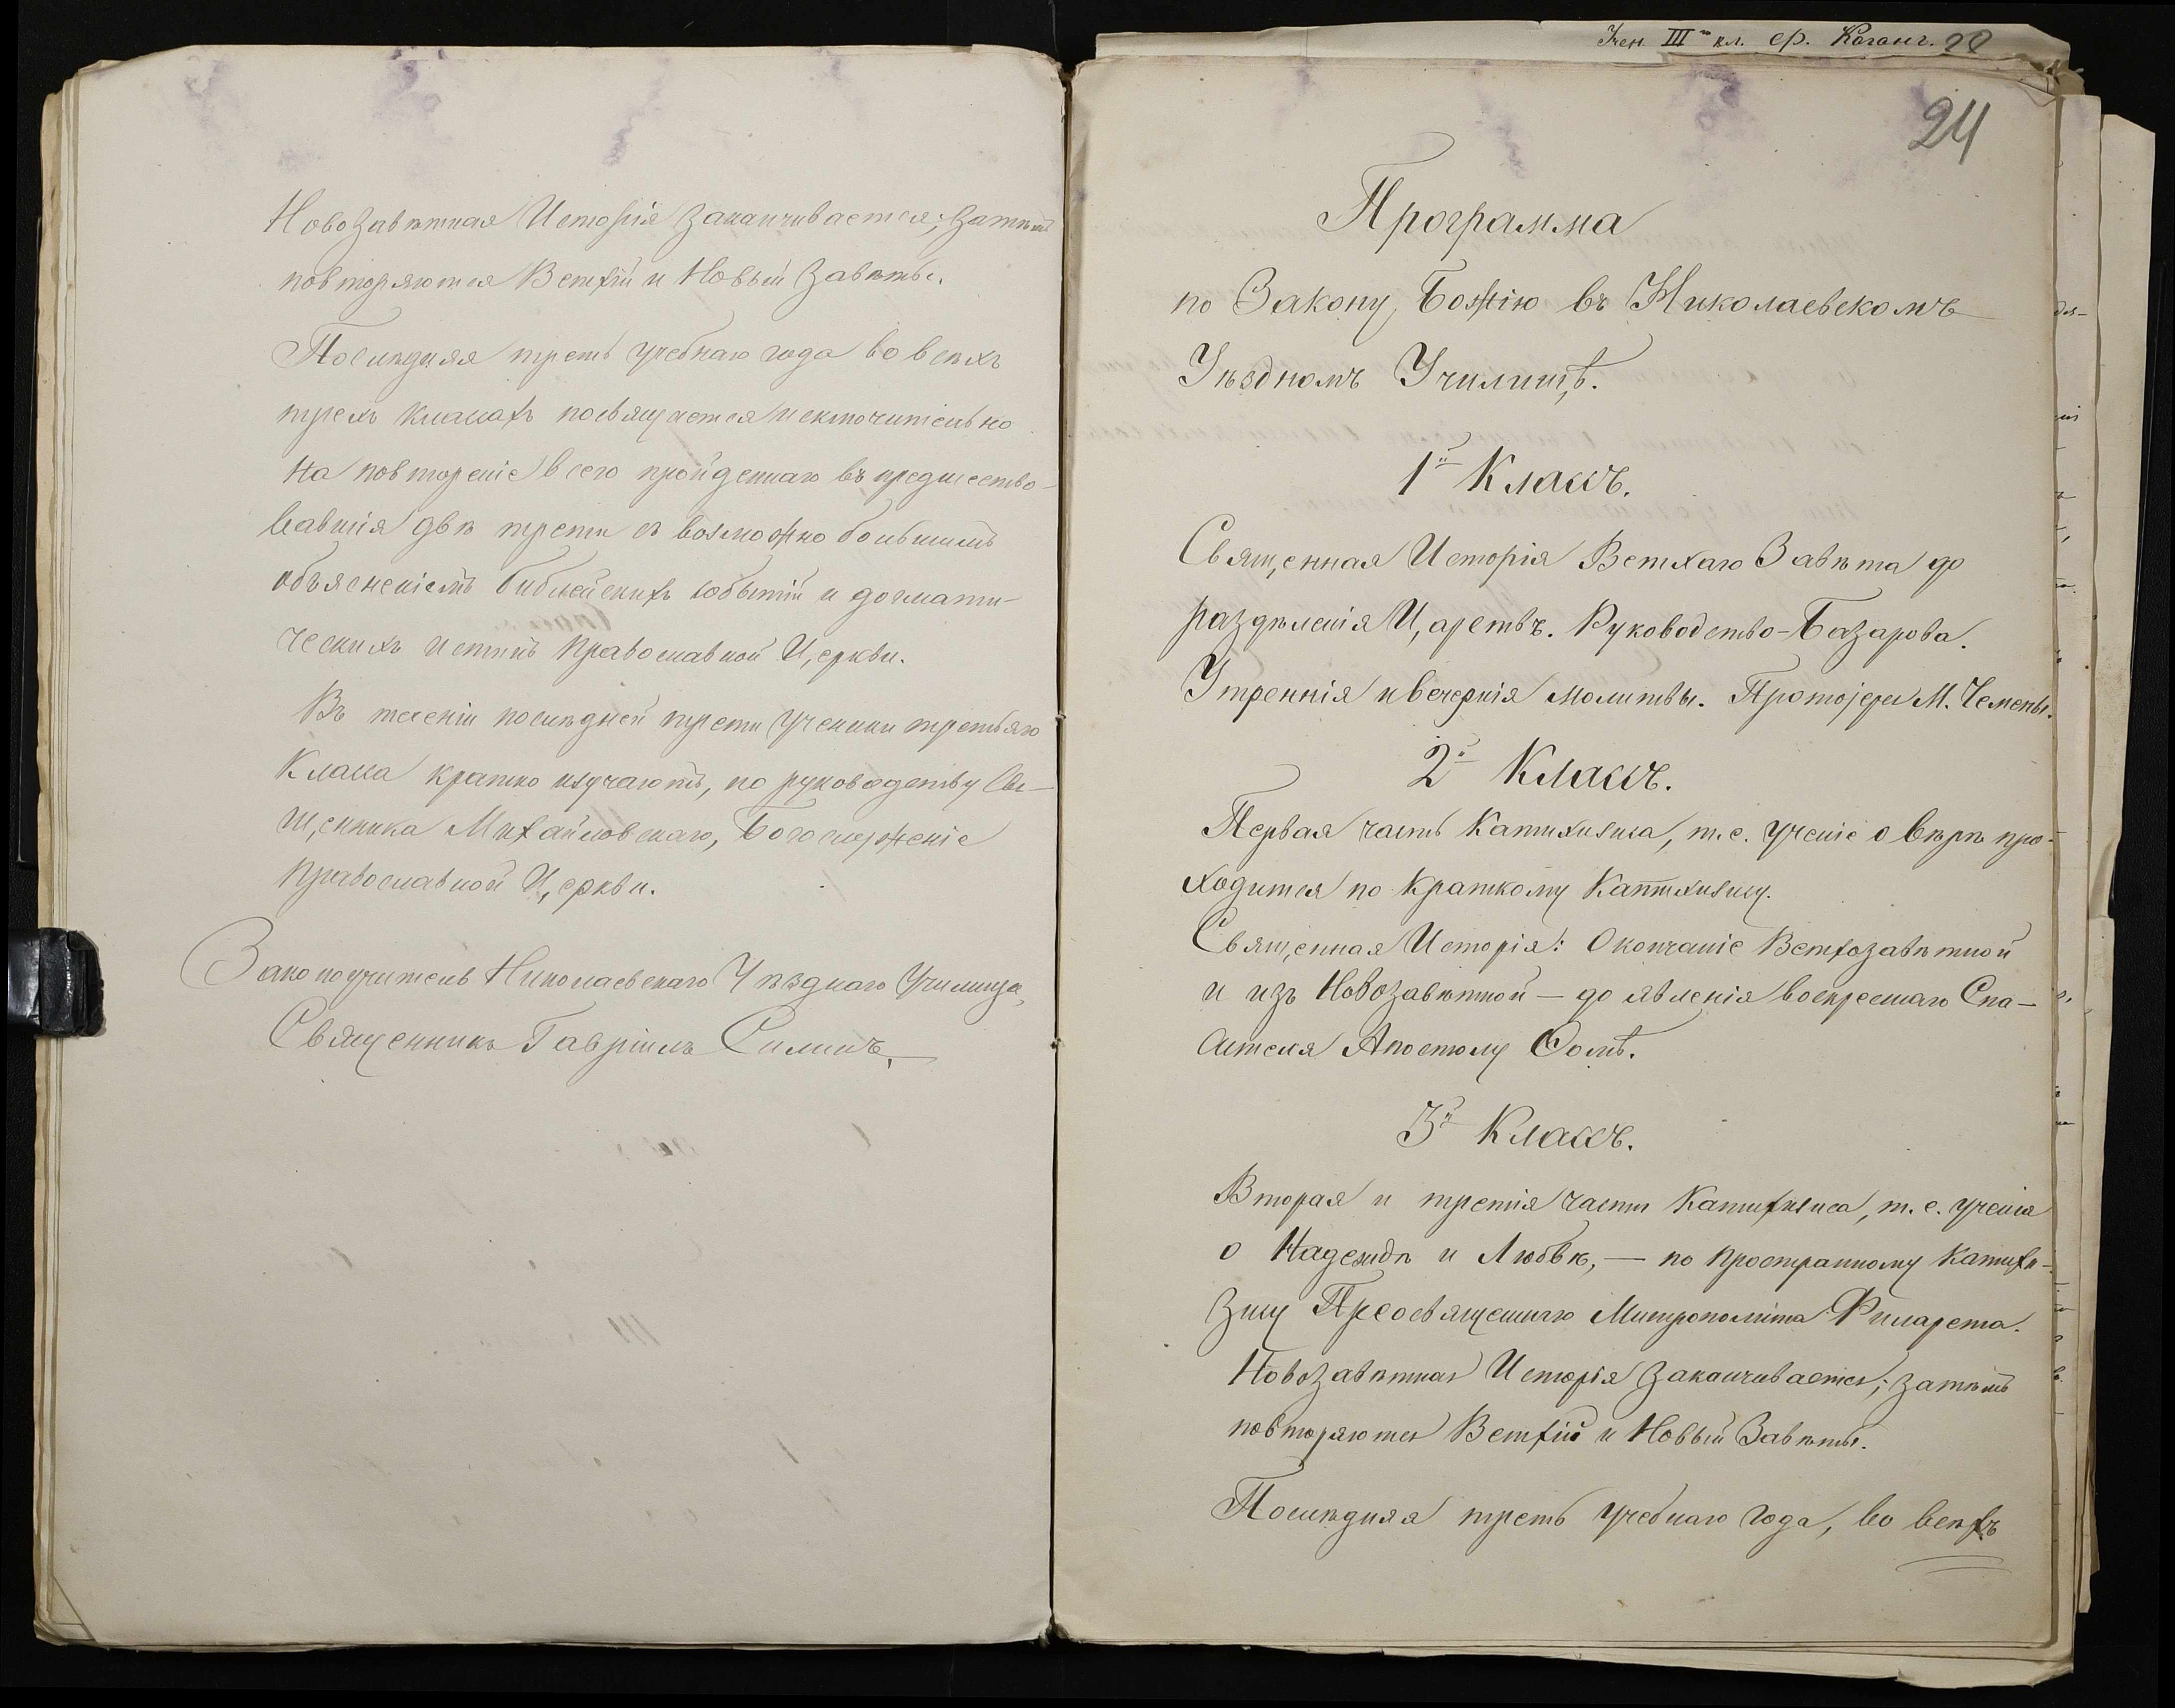 Новозавѣтная Исторія заканчивается; затѣмъ
повторяются Ветхій и Новый Завѣты.
Послѣдняя треть учебнаго года во всѣхъ
трехъ классахъ посвящается исключительно
на повтореніе всего пройденнаго въ предшество-
вавшія двѣ трети съ возможно большимъ
объясненіемъ библейскихъ событій и догмати-
ческихъ истинъ Православной Церкви.
Въ теченіи послѣдней трети ученики третьяго
класса кратко изучаютъ, по руководству Свя-
щенника Михайловскаго, Богослуженіе
Православной Церкви.
Законоучитель Николаевскаго Уѣзднаго Училища,
Священникъ Гавріилъ Силинъ.
Учен. III кл. ср. Каганг.
24
Программа
по Закону Божію въ Николаевскомъ
Уѣздномъ Училищѣ.
1й Классъ.
Священная Исторія Ветхаго Завѣта до
раздѣленія Царствъ. Руководство - Базарова.
Утреннія и вечернія молитвы. Протоіерея М. Чемены.
2й Классъ.
Первая часть Катихизиса, т. е. ученіе о вѣрѣ про-
ходится по краткому Катихизису.
Священная Исторія: Окончаніе Ветхозавѣтной
и изъ Новозавѣтной — до явленія воскресшаго Спа-
сителя Апостолу Ѳомѣ.
3й Классъ.
Вторая и третія части Катихизиса, т. е. ученія
о Надеждѣ и Любвѣ, — по пространному Катихи-
зису Преосвященнаго Митрополита Филарета.
Новозавѣтная Исторія заканчивается; затѣмъ
повторяются Ветхій и Новый Завѣты.
Послѣдняя треть учебнаго года, во всѣхъ